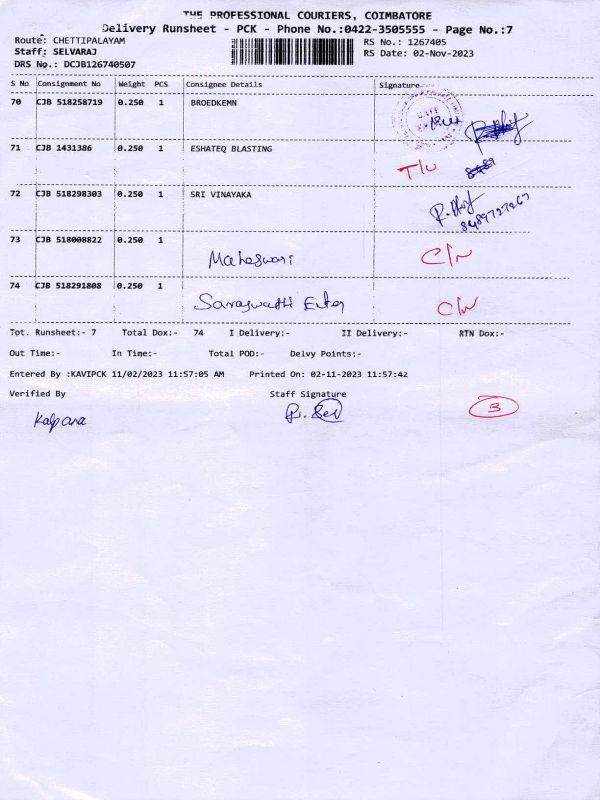 THE PROFESSIONAL COURIERS, COIMBATORE
Delivery Runsheet - PCK - Phone No.:0422-3505555 - Page No.:7
Route: CHETTIPALAYAM
RS No.: 1267405
Staff: SELVARAJ
RS Date: 02-Nov-2023
DRS No.: DCJB126740507
S No Consignment No Weight PCS Consignee Details Signature
70 CJB 518258719 0.250 1 BROEDKEMN
71 CJB 1431386 0.250 1 ESHATEQ BLASTING
T/U
72 CJB 518298303 0.250 1 SRI VINAYAKA
8489727267
73 CJB 518008822 0.250 1
Maheswari C/N
74 CJB 518291808 0.250 1
Saraswathi C/N
Tot. Runsheet:- 7 Total Dox:- 74 I Delivery:- II Delivery:- RTN Dox:-
Out Time:- In Time:- Total POD:- Delvy Points:-
Entered By :KAVIPCK 11/02/2023 11:57:05 AM Printed On: 02-11-2023 11:57:42
Verified By Staff Signature
Kalpana 3